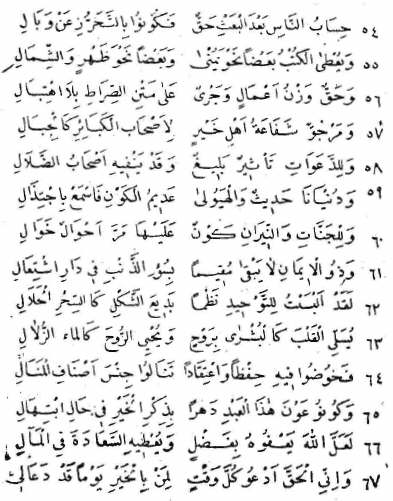 ٥٤ حِسَابُ النَّاسِ بَعْدَ الْبَعْثِ حَقٌّ فَكُونُوا بِالتَّحَرُّزِ عَنْ وَبَالِ
٥٥ وَيُعْطَى الْكُتْبُ بَعْضًا نَحْوَ يُمْنَى وَبَعْضًا نَحْوَ ظَهْرٍ وَالشِّمَالِ
٥٦ وَحَقٌّ وَزْنُ أَعْمَالٍ وَجَرْىٌ عَلَى مَتْنِ الصِّرَاطِ بِلَا اهْتِبَالِ
٥٧ وَمَرْجُوٌّ شَفَاعَةُ أَهْلِ خَيْرٍ لِأَصْحَابِ الْكَبَائِرِ كَالْجِبَالِ
٥٨ وَلِلدَّعَوَاتِ تَأْثِيرٌ بَلِيغٌ وَقَدْ يَنْفِيهِ أَصْحَابُ الضَّلَالِ
٥٩ وَدُنْيَانَا حَدِيثٌ وَالْهَيُولَى عَدِيمُ الْكَوْنِ فَاسْمَعْ بِاجْتِذَالِ
٦٠ وَلِلْجَنَّاتِ وَالنِّيرَانِ كَوْنٌ عَلَيْهَا مَرَّ أَحْوَالٌ خَوَالِ
٦١ وَذُو الْإِيمَانِ لَا يَبْقَى مُقِيمًا بِسُوءِ الذَّنْبِ فِي دَارِ اشْتِعَالِ
٦٢ لَقَدْ أَلْبَسْتُ لِلتَّوْحِيدِ نَظْمًا بَدِيعَ الشَّكْلِ كَالسِّحْرِ الْحَلَالِ
٦٣ يُسَلِّي الْقَلْبَ كَالْبُشْرَى بِرَوْحٍ وَيُحْيِي الرُّوحَ كَالْمَاءِ الزُّلَالِ
٦٤ فَخُوضُوا فِيهِ حِفْظًا وَاعْتِقَادًا تَنَالُوا جِنْسَ أَصْنَافِ الْمَنَالِ
٦٥ وَكُونُوا عَوْنَ هَذَا الْعَبْدِ دَهْرًا بِذِكْرِ الْخَيْرِ فِي حَالِ ابْتِهَالِ
٦٦ لَعَلَّ اللهَ يَعْفُوهُ بِفَضْلٍ وَيُعْطِيهِ السَّعَادَةَ فِي الْمَآلِ
٦٧ وَإِنِّي الْحَقَّ أَدْعُو كُلَّ وَقْتٍ لِمَنْ بِالْخَيْرِ يَوْمًا قَدْ دَعَا لِي